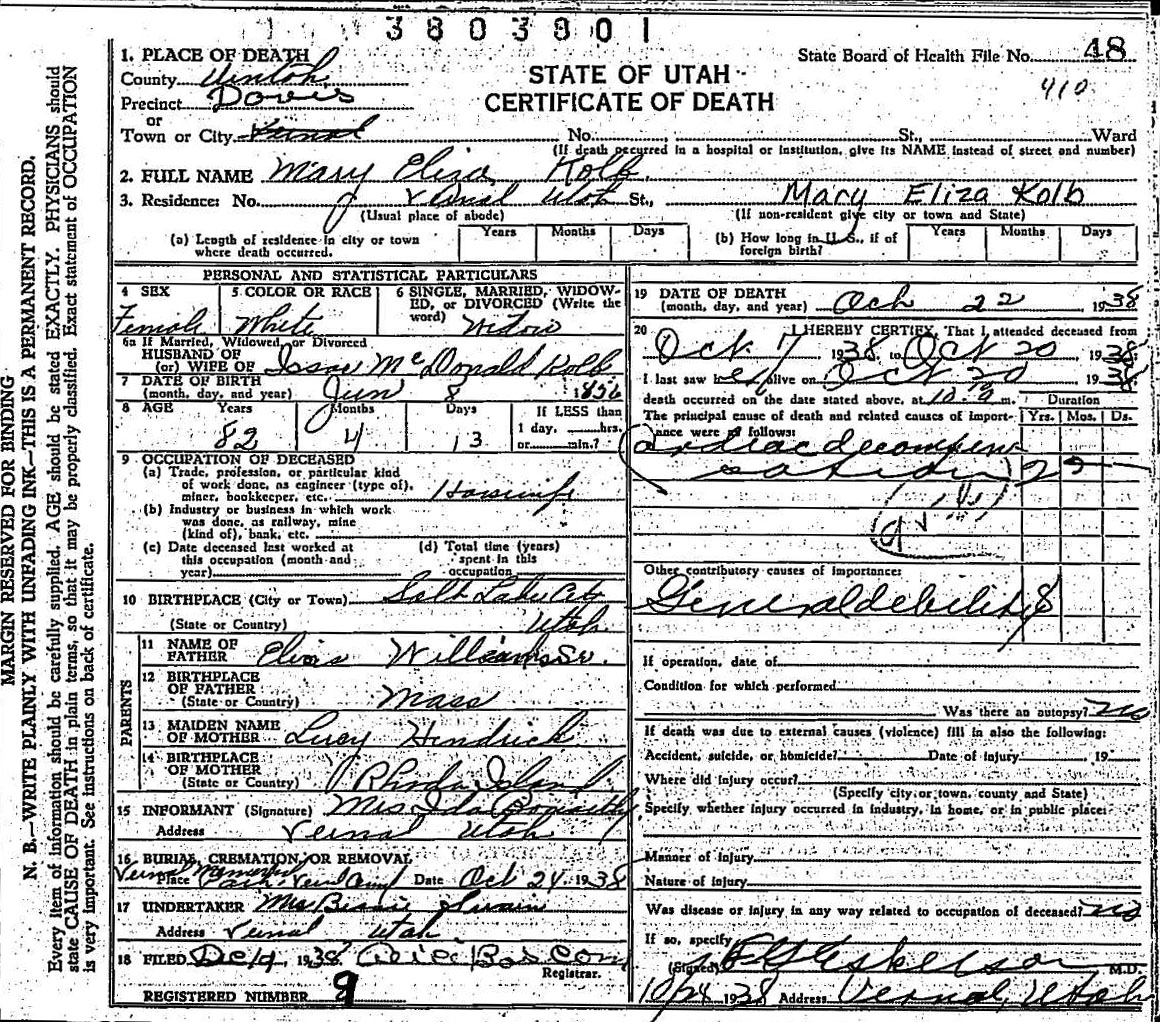 3803901
1. PLACE OF DEATH
State Board of Health File No. 48
County Uintah
STATE OF UTAH
410
Precinct Davis
CERTIFICATE OF DEATH
or
Town or City Vernal No. St., Ward
(If death occurred in a hospital or institution, give its NAME instead of street and number)
2. FULL NAME Mary Eliza Kolb
3. Residence: No. Vernal Utah St., Mary Eliza Kolb
(Usual place of abode) (If non-resident give city or town and State)
(a) Length of residence in city or town where death occurred. Years Months Days
(b) How long in U.S., if of foreign birth? Years Months Days
PERSONAL AND STATISTICAL PARTICULARS
4 SEX 5 COLOR OR RACE 6 SINGLE, MARRIED, WIDOW-
ED, or DIVORCED (Write the
word)
Female White Widow
6a If Married, Widowed, or Divorced
HUSBAND OF
(or) WIFE OF Isaac McDonald Kolb
7 DATE OF BIRTH
(month, day, and year) Jun 8 1856
8 AGE Years Months Days If LESS than
1 day, hrs.
or min.?
82 4 13
9 OCCUPATION OF DECEASED
(a) Trade, profession, or particular kind
of work done, as engineer (type of),
miner, bookkeeper, etc. Housewife
(b) Industry or business in which work
was done, as railway, mine
(kind of), bank, etc.
(c) Date deceased last worked at
this occupation (month and
year)
(d) Total time (years)
spent in this
occupation
10 BIRTHPLACE (City or Town) Salt Lake City
(State or Country) Utah
PARENTS
11 NAME OF
FATHER Williams Sr.
12 BIRTHPLACE
OF FATHER
(State or Country) Mass
13 MAIDEN NAME
OF MOTHER Lucy Hendrick
14 BIRTHPLACE
OF MOTHER
(State or Country) Rhoda Island
15 INFORMANT (Signature) Mrs Ida
Address Vernal Utah
16 BURIAL, CREMATION, OR REMOVAL
Vernal Memorial
Place Park Date Oct 24 1938
17 UNDERTAKER Mrs Swain
Address Vernal Utah
18 FILED Dec 9, 1938
Registrar.
REGISTERED NUMBER 9
19 DATE OF DEATH
(month, day, and year) Oct 22 1938
20 I HEREBY CERTIFY, That I attended deceased from
Oct. 17 1938 to Oct 20 1938
I last saw her alive on Oct 20 1938
death occurred on the date stated above, at m. Duration
The principal cause of death and related causes of import-
ance were as follows: Yrs. Mos. Ds.
Cardiac decompen
sation 2
Other contributory causes of importance:
General debility 8
If operation, date of
Condition for which performed
Was there an autopsy? no
If death was due to external causes (violence) fill in also the following:
Accident, suicide, or homicide? Date of injury 19
Where did injury occur?
(Specify city or town, county and State)
Specify whether injury occurred in industry, in home, or in public place:
Manner of injury
Nature of injury
Was disease or injury in any way related to occupation of deceased? no
If so, specify
(Signed) M.D.
10/24 1938 Address Vernal, Utah
MARGIN RESERVED FOR BINDING
N. B.—WRITE PLAINLY WITH UNFADING INK—THIS IS A PERMANENT RECORD.
Every item of information should be carefully supplied. AGE should be stated EXACTLY. PHYSICIANS should
state CAUSE OF DEATH in plain terms, so that it may be properly classified. Exact statement of OCCUPATION
is very important. See instructions on back of certificate.